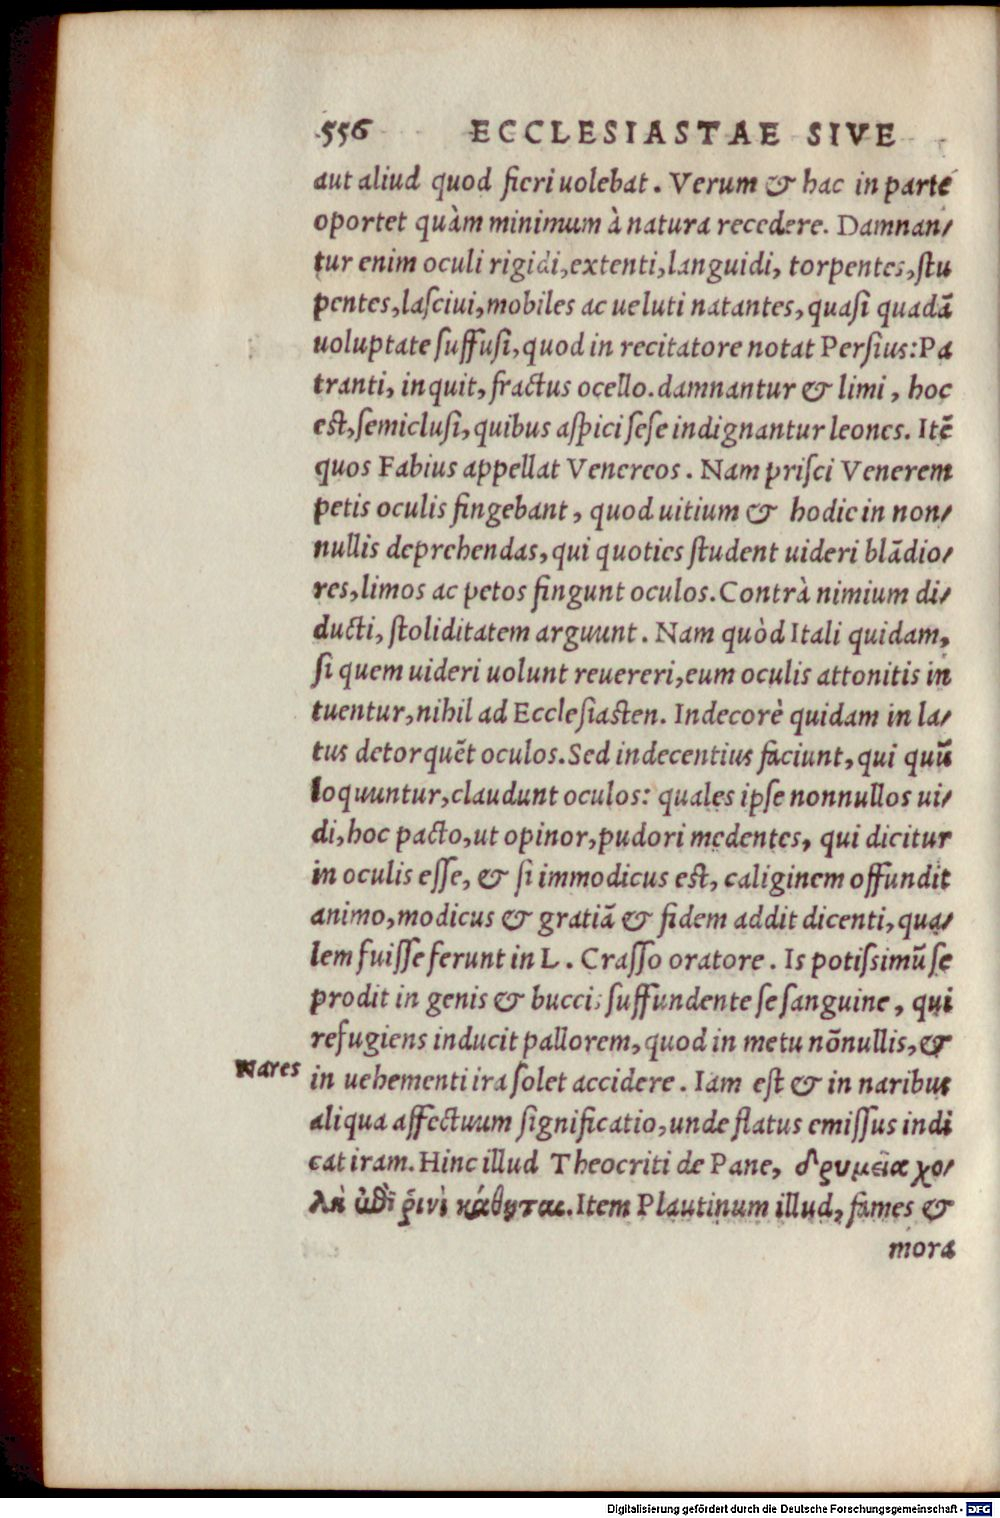 556 ECCLESIASTAE SIVE
aut aliud quod fieri uolebat. Verum & hac in parte
oportet quàm minimum à natura recedere. Damnan/
tur enim oculi rigidi, extenti, languidi, torpentes, ſtu
pentes, laſciui, mobiles ac ueluti natantes, quaſi quadã
uoluptate ſuffuſi, quod in recitatore notat Perſius: Pa
tranti, inquit, fractus ocello. damnantur & limi, hoc
eſt, ſemicluſi, quibus aſpici ſeſe indignantur leones. Itẽ
quos Fabius appellat Venereos. Nam priſci Venerem
petis oculis fingebant, quod uitium & hodie in non/
nullis deprehendas, qui quoties ſtudent uideri blãdio/
res, limos ac petos fingunt oculos. Contrà nimium di/
ducti, ſtoliditatem arguunt. Nam quòd Itali quidam,
ſi quem uideri uolunt reuereri, eum oculis attonitis in
tuentur, nihil ad Eccleſiaſten. Indecorè quidam in la/
tus detorquẽt oculos. Sed indecentius faciunt, qui quũ
loquuntur, claudunt oculos: quales ipſe nonnullos ui/
di, hoc pacto, ut opinor, pudori medentes, qui dicitur
in oculis eſſe, & ſi immodicus eſt, caliginem offundit
animo, modicus & gratiã & fidem addit dicenti, qua/
lem fuiſſe ferunt in L. Craſſo oratore. Is potiſsimũ ſe
prodit in genis & buccis ſuffundente ſe ſanguine, qui
refugiens inducit pallorem, quod in metu nõnullis, &
Nares
in uehementi ira ſolet accidere. Iam eſt & in naribus
aliqua affectuum ſignificatio, unde flatus emiſſus indi
cat iram. Hinc illud Theocriti de Pane, δριμεῖα χο/
λὴ ποτὶ ῥινὶ κάθηται. Item Plautinum illud, fames &
mora
Digitalisierung gefördert durch die Deutsche Forschungsgemeinschaft - DFG